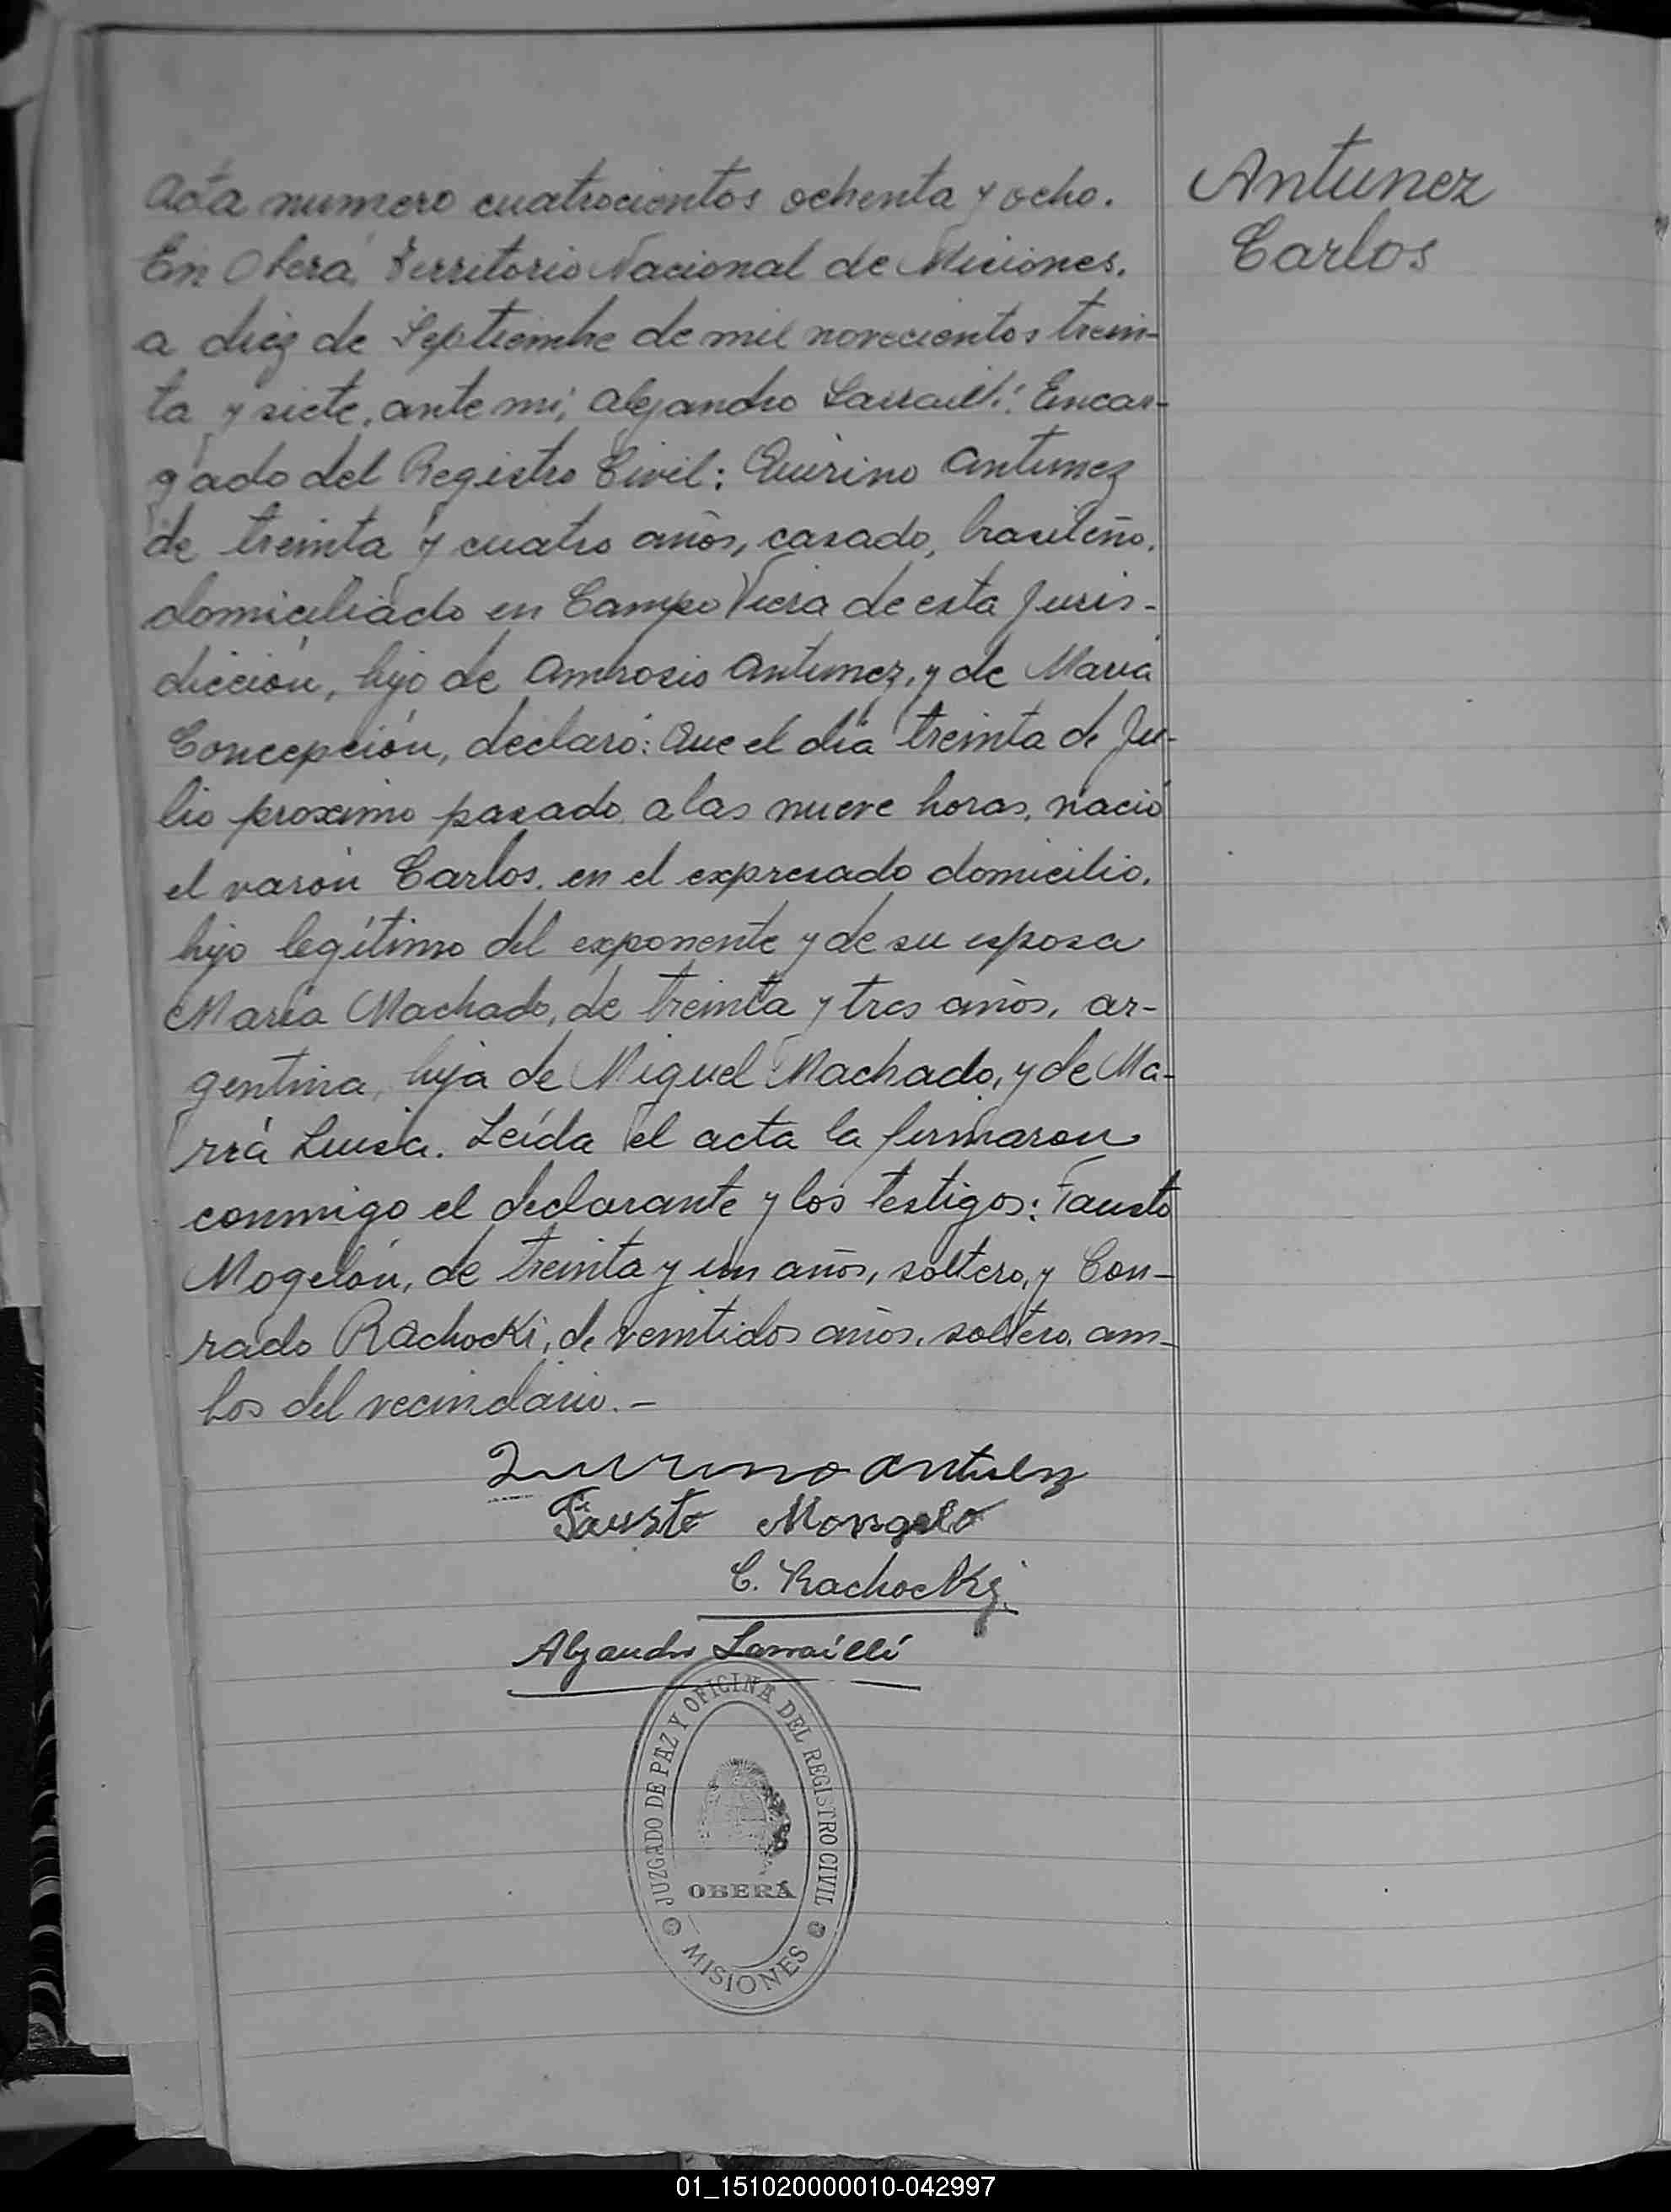 Acta numero cuatrocientos ochenta y ocho.
En Oberá, Territorio Nacional de Misiones,
a diez de Septiembre de mil novecientos trein-
ta y siete, ante mi, Alejandro Larraillí, Encar-
gado del Registro Civil: Quirino Antunez
de treinta y cuatro años, casado, brasileño,
domiciliado en Campo Viera de esta Juris-
dicción, hijo de Ambrosio Antunez, y de Maria
Concepción, declaró: Que el día treinta de Ju-
lio proximo pasado, a las nueve horas, nació
el varón Carlos, en el expresado domicilio,
hijo legítimo del exponente y de su esposa
María Machado, de treinta y tres años, ar-
gentina, hija de Miguel Machado, y de Ma-
ría Luisa. Leída el acta la firmaron
conmigo el declarante y los testigos: Fausto
Mogelón, de treinta y un años, soltero, y Con-
rado Rachocki, de veintidos años, soltero, am-
bos del vecindario.-
Quirino
Fausto Mongelo
C. Rachocki
Alejandro Larraillí
JUZGADO DE PAZ Y OFICINA DEL REGISTRO CIVIL
OBERÁ
MISIONES
Antunez
Carlos
01_151020000010-042997